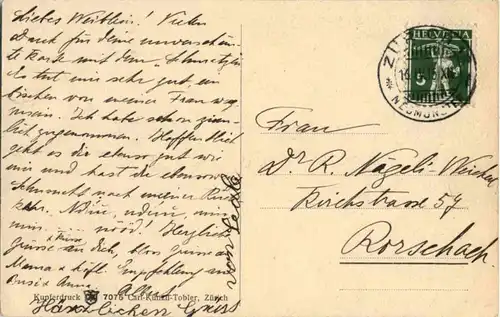 Liebes Weiblein! Vielen
Dank für deine unverschäm-
te Karte mit dem
Es tut mir sehr gut, ein
bischen von meiner Frau weg
sein. Ich habe schon ziem-
lich zugenommen. Hoffentlich
geht es dir ebenso gut wie
mir und hast du ebenso
Sehnsucht nach meiner Rück-
kehr. Nöui, nöui, nöui,
nöui ... nööd! Herzliche
Grüsse & Küsse an dich, blos Grüsse an
Mama & Empfehlung an
Susi & Anna.
Albert
Herzlichen Gruss
HELVETIA
ZÜRICH
NEUMÜNSTER
Frau
Dr R. Nägeli-
Kirchstrasse 57
Rorschach
Kupferdruck 7075 Carl Künzli-Tobler, Zürich